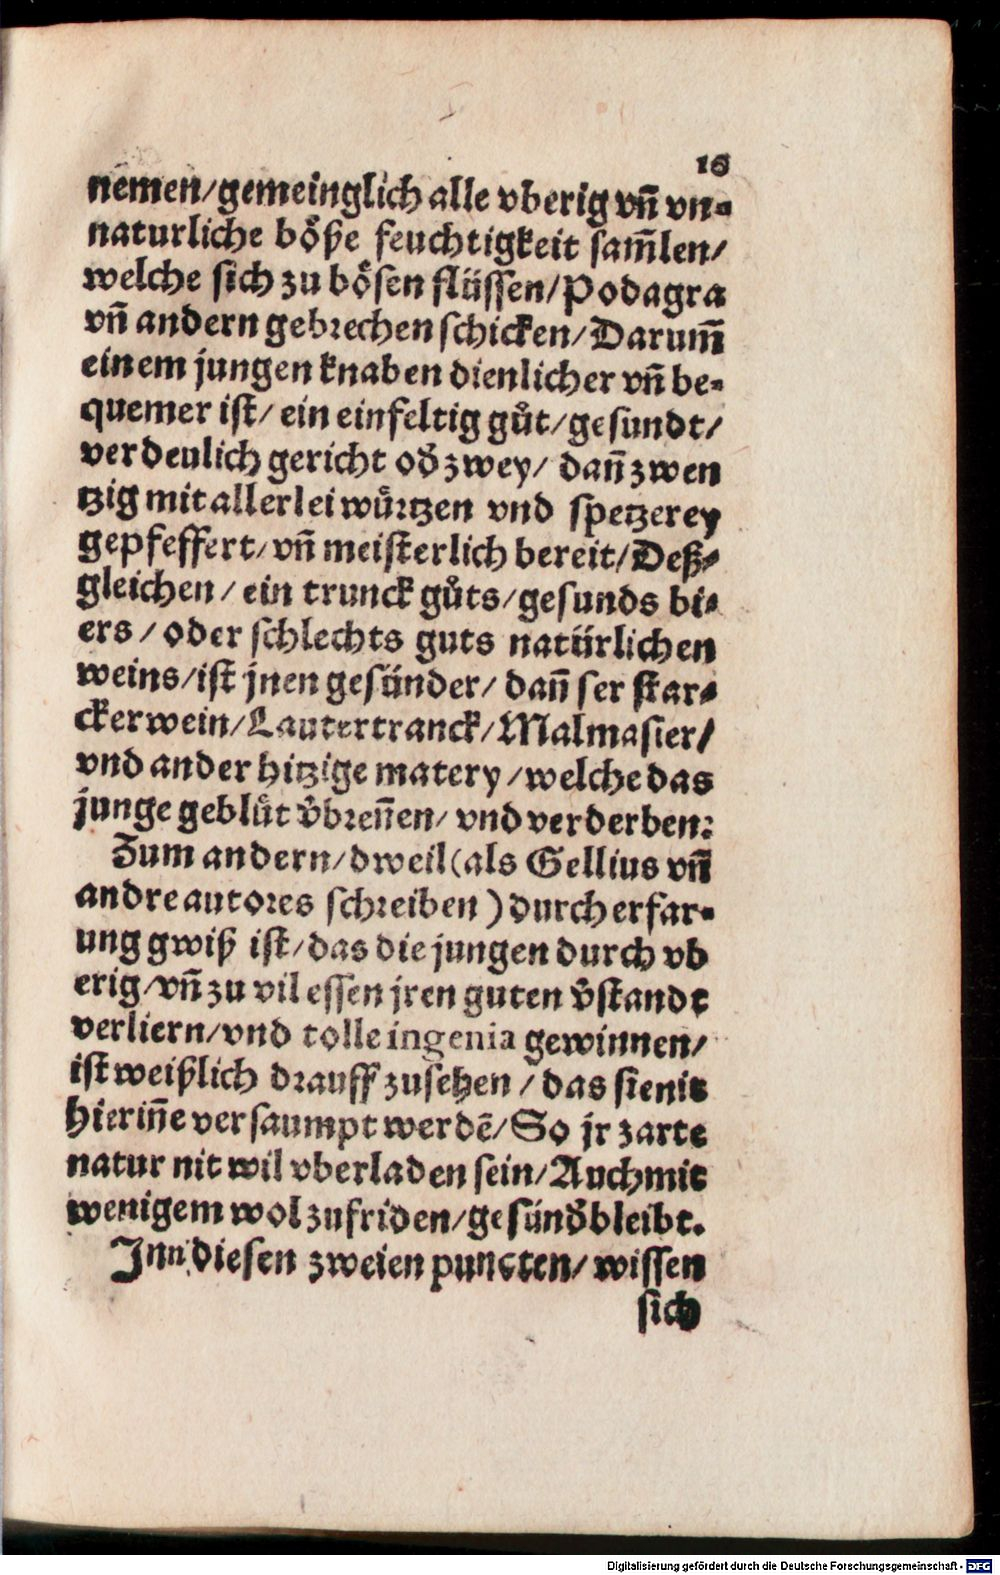 16
nemen/gemeinglich alle vberig vñ vn-
naturliche boͤße feuchtigkeit sam̃len/
welche sich zu boͤsen flüssen/Podagra
vñ andern gebrechen schicken/Darum̃
einem jungen knaben dienlicher vñ be-
quemer ist/ ein einfeltig guͦt/gesundt/
verdeulich gericht od̕ zwey/ dañ zwen
tzig mit allerlei wuͤrtzen vnd spetzerey
gepfeffert/vñ meisterlich bereit/Deß-
gleichen/ ein trunck guͦts/gesunds bi-
ers / oder schlechts guts natürlichen
weins/ist jnen gesünder/ dañ ser star-
cker wein/Lautertranck/Malmasier/
vnd ander hitzige matery /welche das
junge gebluͦt v̕breñen/ vnd verderben:
Zum andern/dweil(als Gellius vñ
andre autores schreiben )durch erfar-
ung gwiß ist/das die jungen durch vb
erig/vñ zu vil essen jren guten v̕standt
verliern/vnd tolle ingenia gewinnen/
ist weißlich drauff zusehen / das sie nit
hieriñe versaumpt werdẽ/So jr zarte
natur nit wil vberladen sein/Auch mit
wenigem wol zufriden/gesünd̕ bleibt.
Inn diesen zweien puncten/ wissen
sich
Digitalisierung gefördert durch die Deutsche Forschungsgemeinschaft - DFG